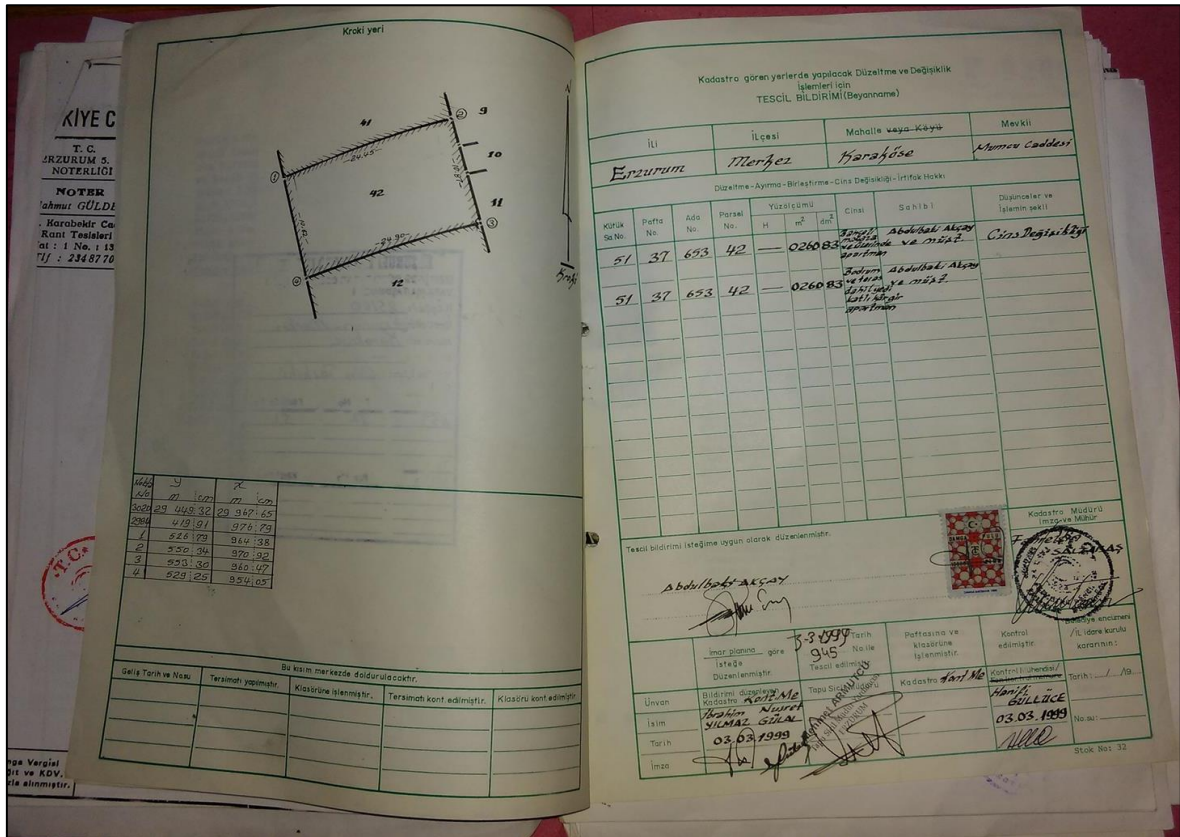 KİYE C
T. C.
ERZURUM 5.
NOTERLİĞİ
NOTER
Karabekir Ca
Rant Tesisleri
Kat : 1 No. : 13
Tlf : 234 87 70
T.C.
nga Vergisi
ve KDV.
alınmıştır.
Kroki yeri
41
9
10
11
12
42
1
2
3
4
24.45
24.99
Nokta No
y
x
m cm m cm
3020 29 449 32 29 967 65
2984 419 91 976 79
1 526 79 964 38
2 550 34 970 92
3 553 30 960 47
4 529 25 954 05
Bu kısım merkezde doldurulacaktır.
Geliş Tarih ve Nosu
Tersimatı yapılmıştır.
Klasörüne işlenmiştir.
Tersimatı kont. edilmiştir.
Klasörü kont. edilmiştir.
Kadastro gören yerlerde yapılacak Düzeltme ve Değişiklik
İşlemleri için
TESCİL BİLDİRİMİ (Beyanname)
İLİ
İLçesi
Mahalle veya Köyü
Mevkii
Erzurum
Merkez
Karaköse
Mumcu Caddesi
Düzeltme-Ayırma-Birleştirme-Cins Değişikliği-İrtifak Hakkı
Kütük Sa No.
Pafta No.
Ada No.
Parsel No.
Yüzölçümü
H m² dm²
Cinsi
Sahibi
Düşünceler ve İşlemin şekli
51 37 653 42 — 0260 83
mağaza ve üzerinde apartman
Abdulbaki Akçay ve müşt.
Cins Değişikliği
51 37 653 42 — 0260 83
Bodrum ve teras dahil yedi katlı kârgir apartman
Abdulbaki Akçay ve müşt.
Tescil bildirimi isteğime uygun olarak düzenlenmiştir.
Abdulbaki AKÇAY
DAMGA PULU
Kadastro Müdürü
İmza ve Mühür
İmar planına göre
İsteğe
Düzenlenmiştir.
3-3-1999 Tarih
945 No ile
Tescil edilmiştir
Paftasına ve
klasörüne
işlenmiştir.
Kontrol
edilmiştir.
Belediye encümeni
/İL idare kurulu
kararının :
Ünvan
Bildirimi düzenleyen
Kadastro Kont. Me
Tapu Sicil Müdürü
Kadastro Kont. Me
Kontrol Mühendisi/
Tarih : / /19
İsim
İbrahim YILMAZ
Nusret GÜLAL
ARMUTCU
Tapu Sicil Müdürü
ERZURUM
Hanifi GÜLLÜCE
Tarih
03.03.1999
03.03.1999
No.su:
İmza
Stok No: 32